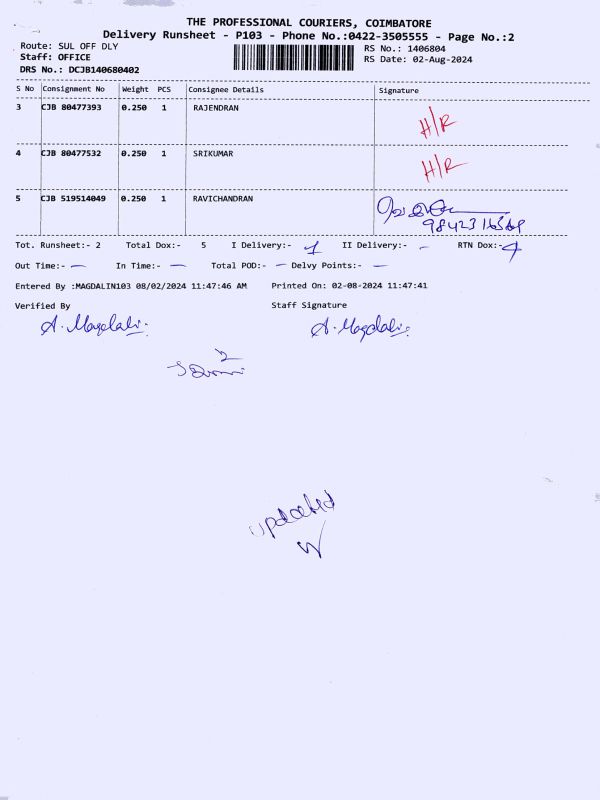 THE PROFESSIONAL COURIERS, COIMBATORE
Delivery Runsheet - P103 - Phone No.:0422-3505555 - Page No.:2
Route: SUL OFF DLY
RS No.: 1406804
Staff: OFFICE
RS Date: 02-Aug-2024
DRS No.: DCJB140680402
S No Consignment No Weight PCS Consignee Details Signature
3 CJB 80477393 0.250 1 RAJENDRAN H/R
4 CJB 80477532 0.250 1 SRIKUMAR H/R
5 CJB 519514049 0.250 1 RAVICHANDRAN
Tot. Runsheet:- 2 Total Dox:- 5 I Delivery:- 1 II Delivery:- - RTN Dox:- 4
Out Time:- - In Time:- - Total POD:- - Delvy Points:- -
Entered By :MAGDALIN103 08/02/2024 11:47:46 AM Printed On: 02-08-2024 11:47:41
Verified By Staff Signature
A. Magdalin. A. Magdalin.
updated